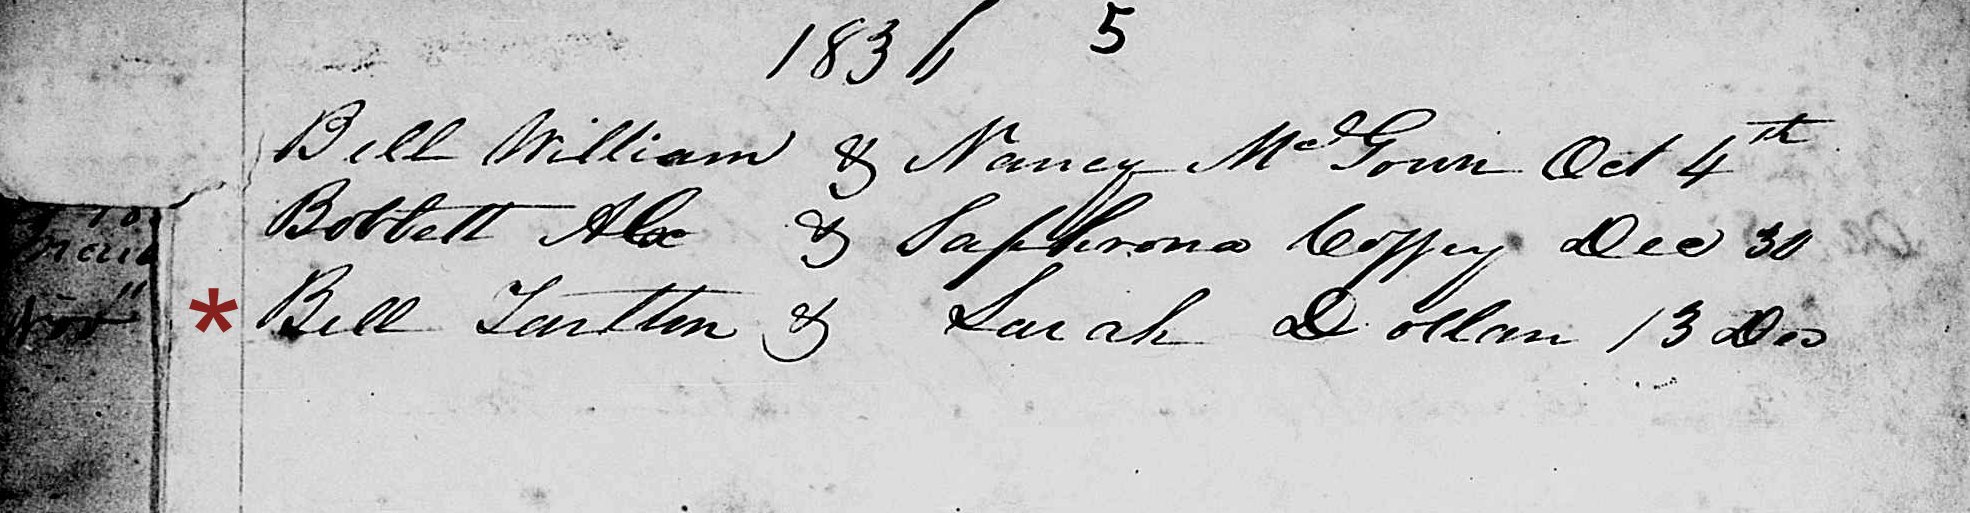 183 5
Bell William & Nancy McGown Oct 4th
Bobbett Alx & Saphrona Coffey Dec 30
* Bell Tartton & Sarah Dollan 13 Dec
Nov "